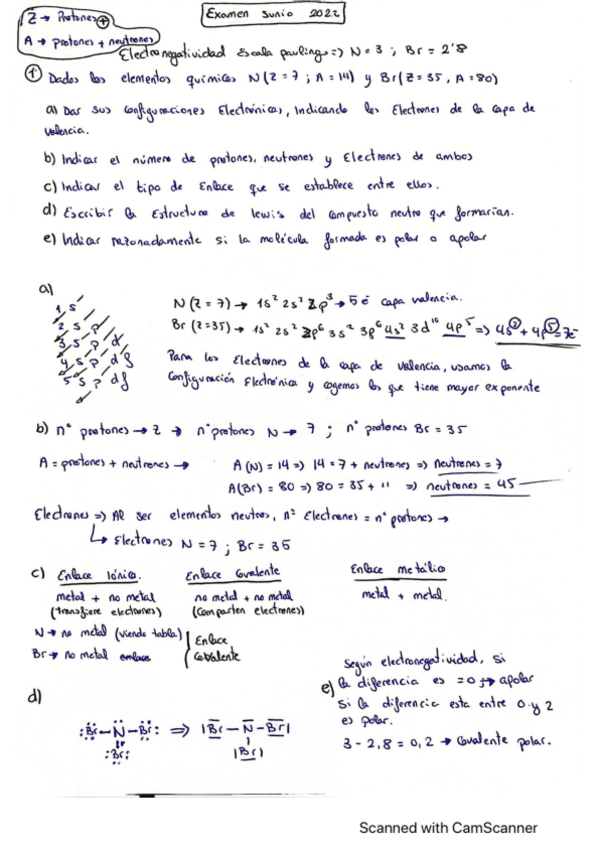 Z → Protones ⊕
A → protones + neutrones
Examen Junio 2022
Electronegatividad Escala pauling => N = 3 ; Br = 2'8
① Dados los elementos químicos N (Z = 7 ; A = 14) y Br (Z = 35, A = 80)
a) Dar sus configuraciones Electrónicas, indicando los Electrones de la capa de
valencia.
b) Indicar el número de protones, neutrones y Electrones de ambos
c) Indicar el tipo de Enlace que se establece entre ellos.
d) Escribir la Estructura de lewis del compuesto neutro que formarían.
e) Indicar razonadamente si la molécula formada es polar o apolar
a)
1 s
2 s p
3 s p d
4 s p d f
5 s p d f
N (Z = 7) → 1s² 2s² 2p³ → 5 é capa valencia.
Br (Z=35) → 1s² 2s² 2p⁶ 3s² 3p⁶ 4s² 3d¹⁰ 4p⁵ => 4s² + 4p⁵ = 7é
Para los Electrones de la capa de valencia, usamos la
Configuración Electrónica y cogemos los que tiene mayor exponente
b) nº protones → Z → nº protones N → 7 ; nº protones Br = 35
A = protones + neutrones → A (N) = 14 => 14 = 7 + neutrones => neutrones = 7
A (Br) = 80 => 80 = 35 + 11 => neutrones = 45
Electrones => Al ser elementos neutros, nº Electrones = nº protones →
↳ Electrones N = 7 ; Br = 35
c) Enlace Iónico. Enlace Covalente Enlace metálico
metal + no metal no metal + no metal metal + metal.
(transfiere electrones) (Comparten electrones)
N → no metal (viendo tabla) Enlace
Br → no metal Covalente
d)
:Br – N – Br: => |Br – N – Br|
:Br: |Br|
e) Según electronegatividad, si
la diferencia es = 0 → apolar
Si la diferencia esta entre 0 y 2
es polar.
3 - 2,8 = 0,2 → Covalente polar.
Scanned with CamScanner